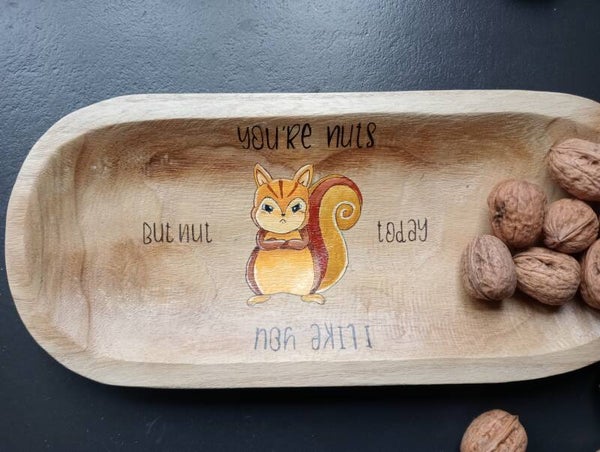 YOU'RE nuts
But nut
today
I LIKE YOU